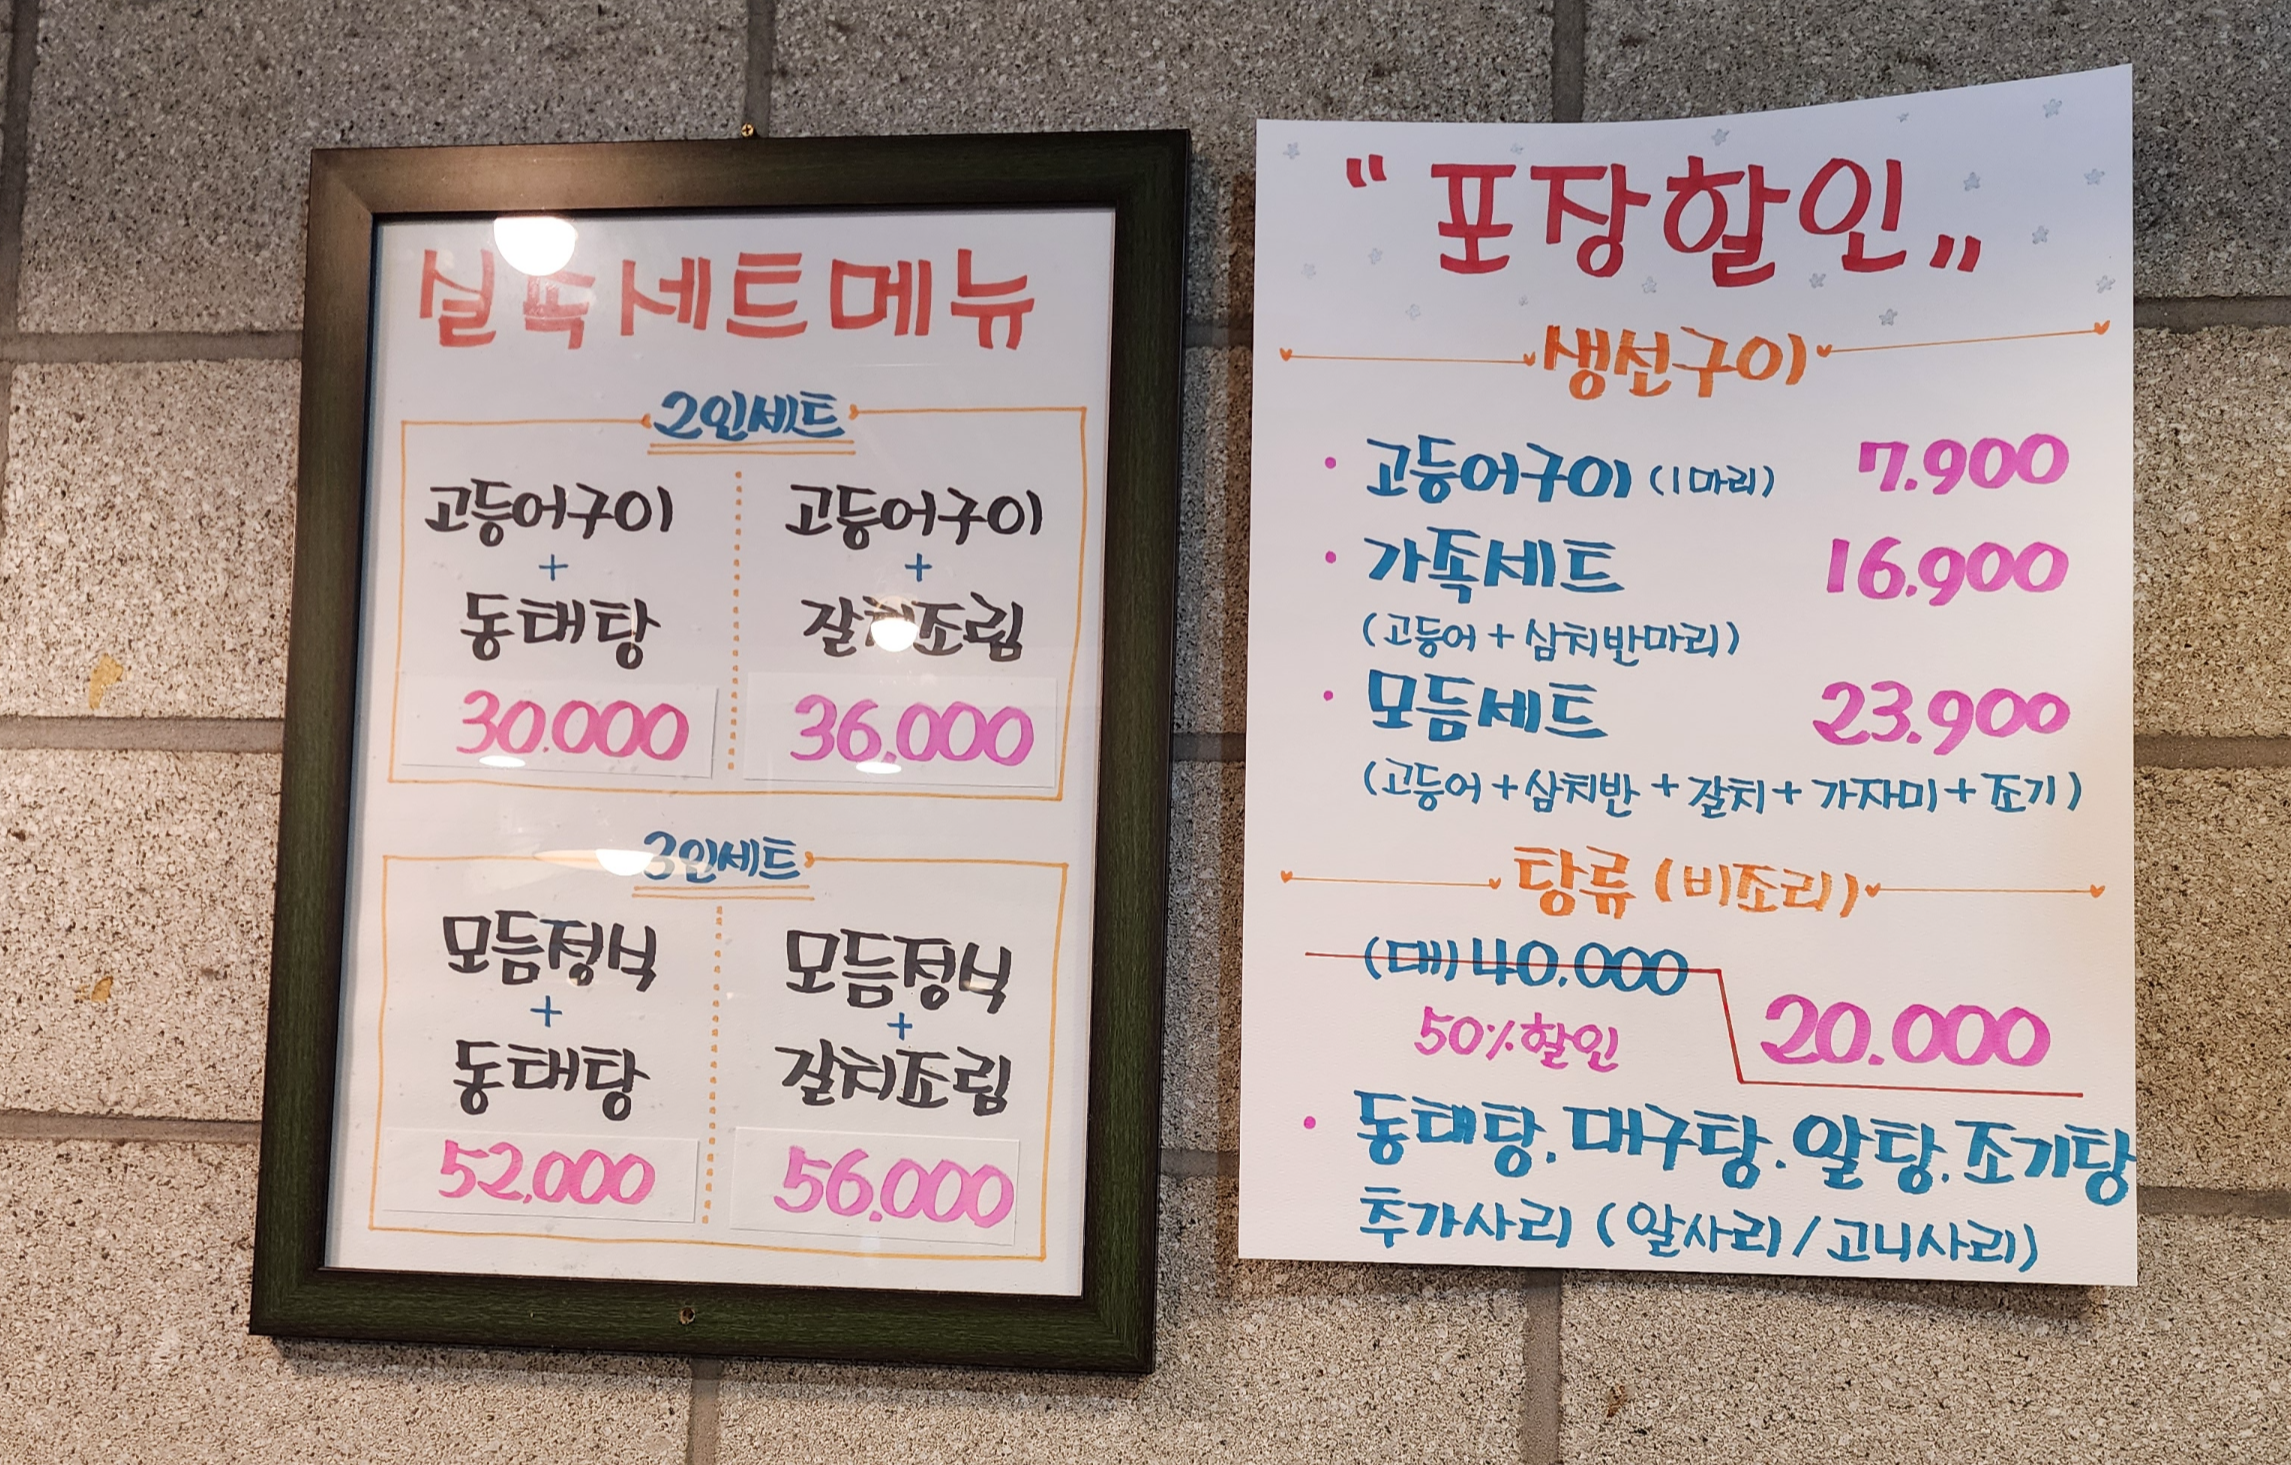 실속세트메뉴
2인세트
고등어구이
+
동태탕
30.000
고등어구이
+
갈치조림
36.000
3인세트
모듬정식
+
동태탕
52,000
모듬정식
+
갈치조림
56.000
"포장할인"
생선구이
• 고등어구이 (1마리) 7.900
• 가족세트 16.900
(고등어 + 삼치반마리)
• 모듬세트 23.900
(고등어 + 삼치반 + 갈치 + 가자미 + 조기)
탕류 (비조리)
(대) 40.000
50% 할인 20.000
• 동태탕. 대구탕. 알탕. 조기탕
추가사리 (알사리 / 고니사리)